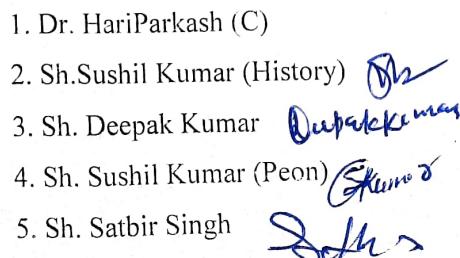 1. Dr. HariParkash (C)
2. Sh.Sushil Kumar (History)
3. Sh. Deepak Kumar Deepakkumar
4. Sh. Sushil Kumar (Peon) SKumar
5. Sh. Satbir Singh